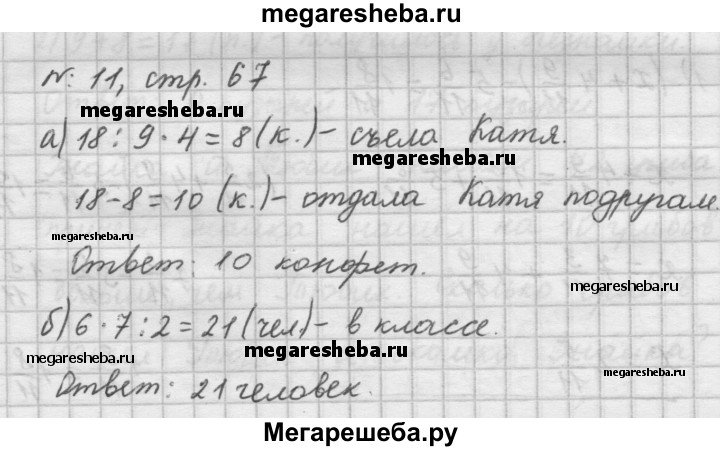 megaresheba.ru
№ 11, стр. 67
megaresheba.ru
а) 18 : 9 · 4 = 8 (к.) - съела Катя.
megaresheba.ru
18 - 8 = 10 (к.) - отдала Катя подругам.
megaresheba.ru
Ответ: 10 конфет.
megaresheba.ru
б) 6 · 7 : 2 = 21 (чел) - в классе.
megaresheba.ru
megaresheba.ru
megaresheba.ru
Ответ: 21 человек.
Мегарешеба.ру